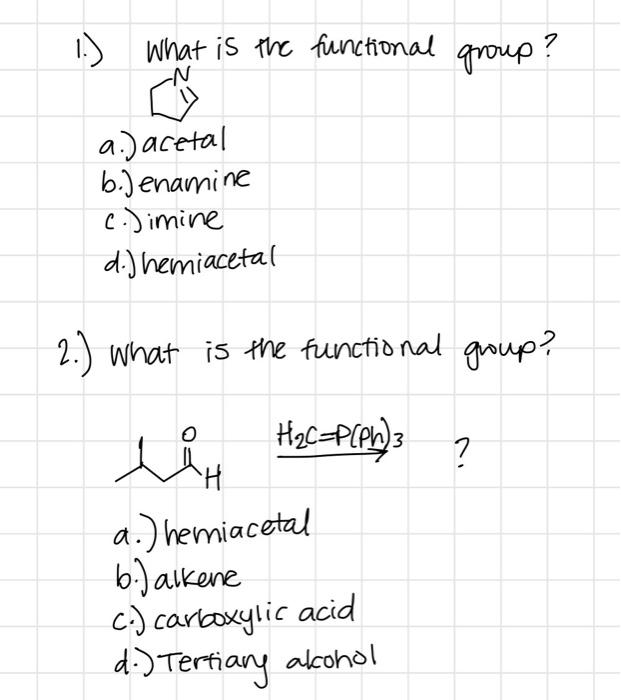 1.) What is the functional group?
N
a.) acetal
b.) enamine
c.) imine
d.) hemiacetal
2.) What is the functional group?
O
H
H2C=P(Ph)3
?
a.) hemiacetal
b.) alkene
c.) carboxylic acid
d.) Tertiary alcohol